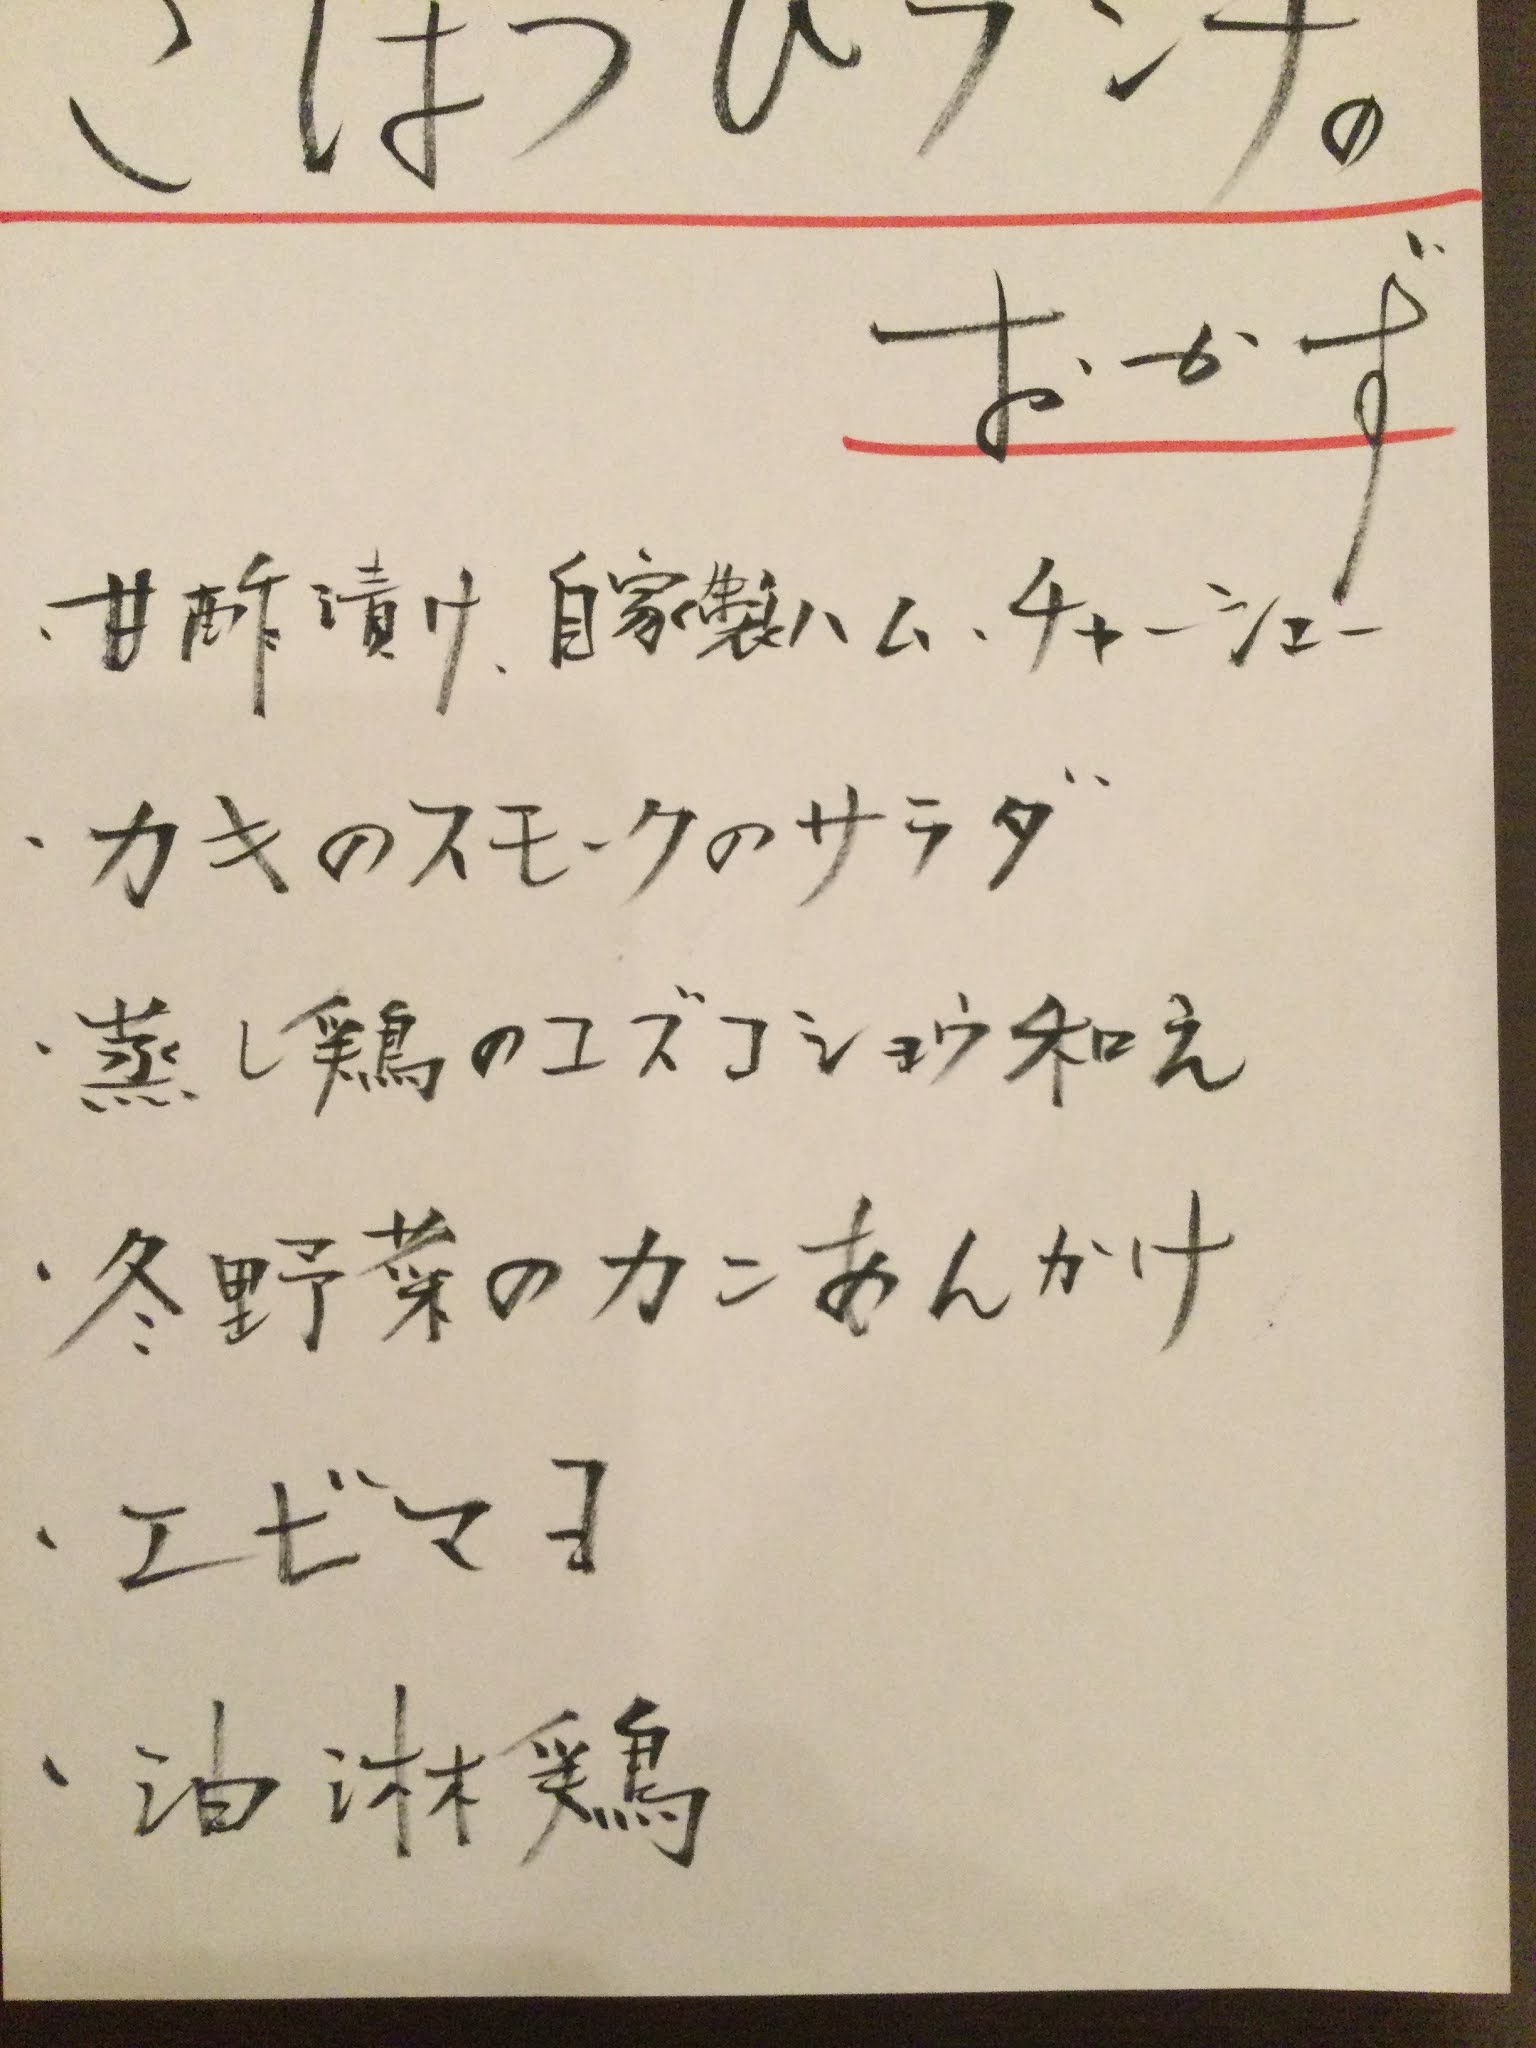 こはつひランチの
おかず
・甘酢漬け、自家製ハム、チャーシュー
・カキのスモークのサラダ
・蒸し鶏のユズコショウ和え
・冬野菜のカニあんかけ
・エビマヨ
・油淋鶏